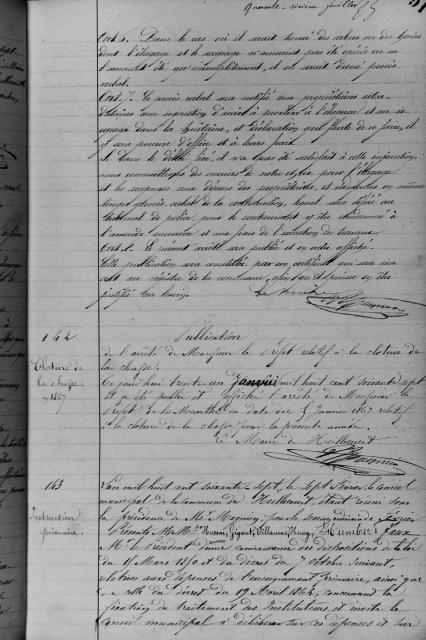 Quarante-sixième feuillet
Art. 6. Dans le cas où il serait trouvé des arbres ou des haies
dont l'élagage et le recepage n'auraient pas été opérés ou ne
l'auraient été qu'incomplètement, il en serait dressé procès
verbal.
Art. 7. Le procès verbal sera notifié aux propriétaires
avec injonction d'avoir à procéder à l'élagage
dans la huitaine, et déclaration que faute de ce faire, il
y sera pourvu d'office et à leurs frais.
Si dans le délai fixé, il n'a pas été satisfait à cette injonction,
nous commettrons des ouvriers de notre choix pour l'élagage
et les recepages aux dépens des propriétaires, et
temps procès verbal de la contravention, lequel sera déféré au
tribunal de police, pour le contrevenant y être condamné à
l'amende encourue et aux frais de l'exécution des travaux.
Art. 8. Le présent arrêté sera publié et en outre affiché.
Cette publication sera constatée par un certificat qui sera
au registre de la commune, afin qu'il puisse en être
justifié au besoin.
Le Maire
142
Publication
Clôture de
la chasse
1867
de l'arrêté de Monsieur le Préfet relatif à la clôture de
la chasse.
Ce jourd'hui trente-un Janvier mil huit cent soixante sept
a été publié et affiché l'arrêté de Monsieur le
Préfet de la Meurthe en date du 5 Janvier 1867 relatif
à la clôture de la chasse pour la présente année.
Le Maire de Heillecourt
143
Instruction
primaire.
L'an mil huit cent soixante-sept, le sept Février, le Conseil
municipal de la commune de Heillecourt, étant réuni sous
la présidence de Mr. Magnin, pour la session ordinaire de Février
Présents MM.
Mr. le Président donne connaissance des dispositions de la loi
du 15 Mars 1850 et du décret du 7 octobre suivant,
relatives aux dépenses de l'enseignement primaire, ainsi que
de celle du décret du 19 Avril 1862, concernant la
fixation du traitement des Instituteurs et invite le
Conseil municipal à délibérer sur ces dépenses et sur